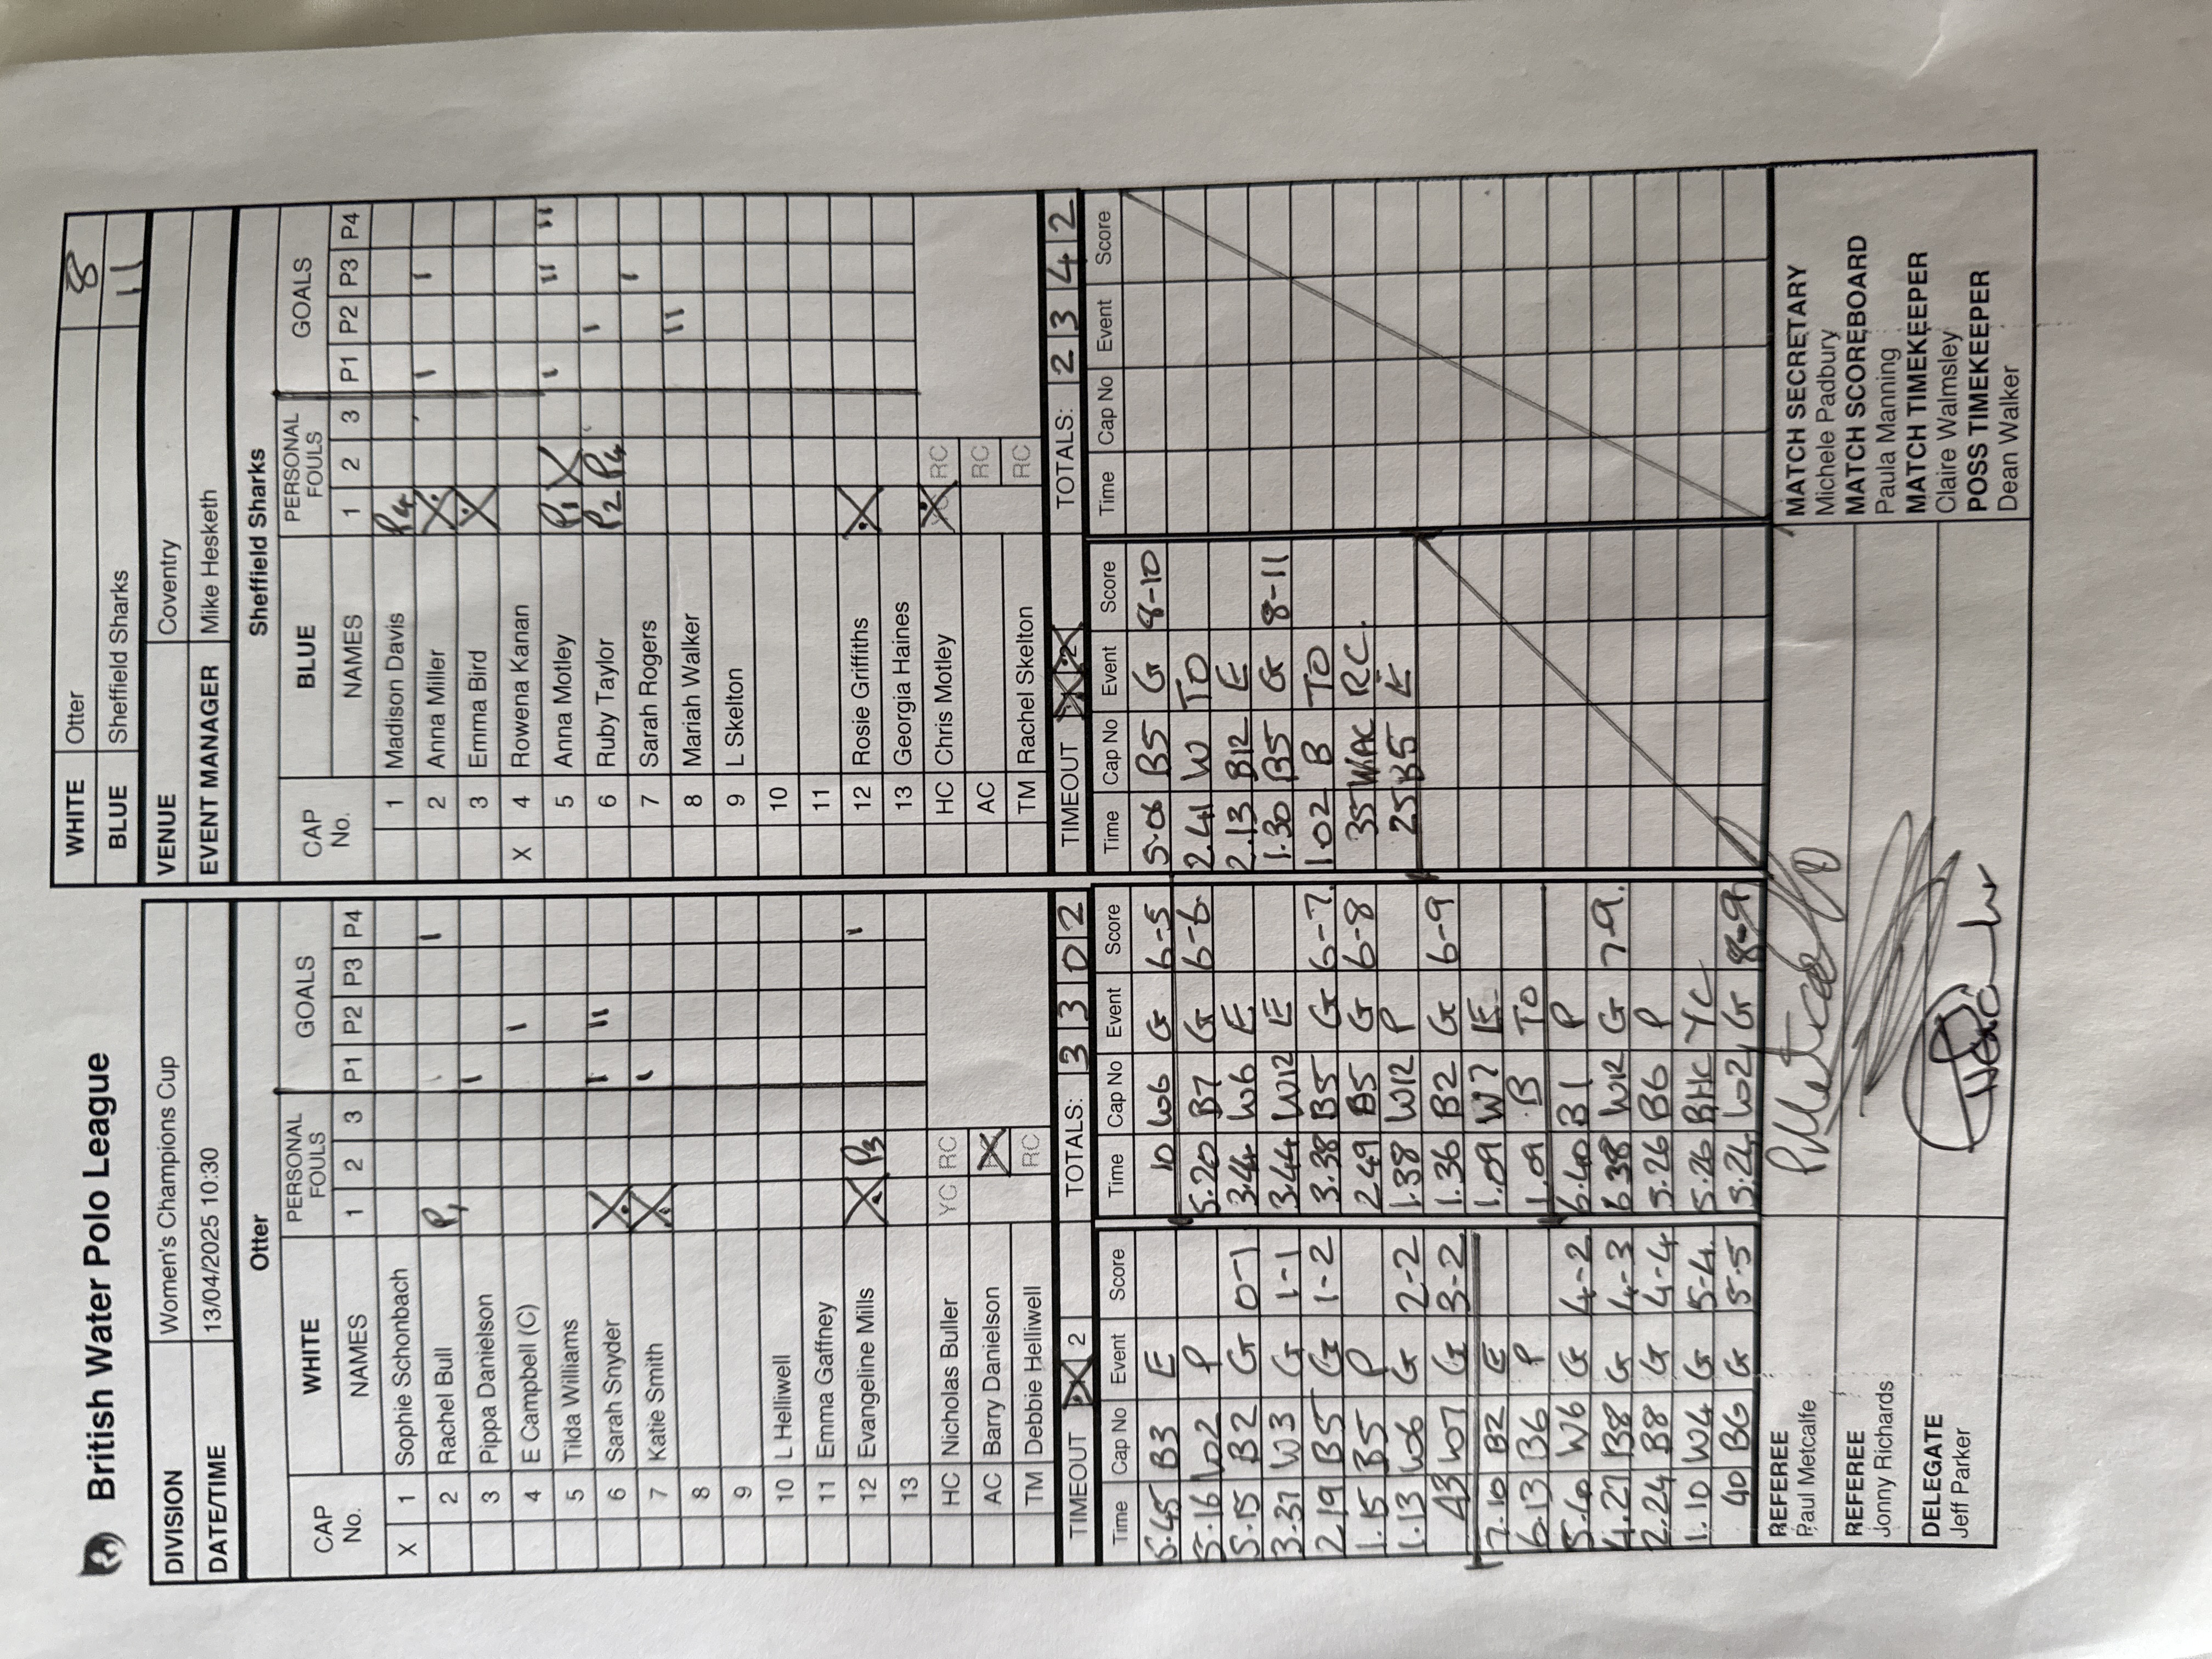 British Water Polo League
WHITE Otter 8
BLUE Sheffield Sharks 11
DIVISION Women's Champions Cup
DATE/TIME 13/04/2025 10:30
VENUE Coventry
EVENT MANAGER Mike Hesketh
Otter
CAP No. WHITE NAMES PERSONAL FOULS 1 2 3 GOALS P1 P2 P3 P4
X 1 Sophie Schonbach
2 Rachel Bull P1 I
3 Pippa Danielson I
4 E Campbell (C) I
5 Tilda Williams
6 Sarah Snyder X I II
7 Katie Smith X I
8
9
10 L Helliwell
11 Emma Gaffney
12 Evangeline Mills X P3 I
13
HC Nicholas Buller YC RC
AC Barry Danielson X
TM Debbie Helliwell RC
TIMEOUT X 2 TOTALS: 3 3 0 2
Sheffield Sharks
CAP No. BLUE NAMES PERSONAL FOULS 1 2 3 GOALS P1 P2 P3 P4
1 Madison Davis P4
2 Anna Miller X I I
3 Emma Bird X
X 4 Rowena Kanan
5 Anna Motley P1 X I II II
6 Ruby Taylor P2 P4 I
7 Sarah Rogers I
8 Mariah Walker II
9 L Skelton
10
11
12 Rosie Griffiths X
13 Georgia Haines
HC Chris Motley X RC
AC RC
TM Rachel Skelton RC
TIMEOUT X X TOTALS: 2 3 4 2
Time Cap No Event Score
5.45 B3 E
5.16 W2 P
5.15 B2 G 0-1
3.37 W3 G 1-1
2.19 B5 G 1-2
1.15 B5 P
1.13 W6 G 2-2
43 W7 G 3-2
7.10 B2 E
6.13 B6 P
5.40 W6 G 4-2
4.27 B8 G 4-3
2.24 B8 G 4-4
1.10 W4 G 5-4
40 B6 G 5-5
Time Cap No Event Score
10 W6 G 6-5
5.20 B7 G 6-6
3.44 W6 E
3.44 W12 E
3.38 B5 G 6-7
2.49 B5 G 6-8
1.38 W12 P
1.36 B2 G 6-9
1.09 W7 E
1.09 B TO
6.40 B1 P
6.38 W12 G 7-9
5.26 B6 P
5.26 BHC YC
3.24 W2 G 8-9
Time Cap No Event Score
5.06 B5 G 8-10
2.41 W TO
2.13 B12 E
1.30 B5 G 8-11
1.02 B TO
35 WAC RC.
25 B5 E
Time Cap No Event Score
REFEREE
Paul Metcalfe
REFEREE
Jonny Richards
DELEGATE
Jeff Parker
MATCH SECRETARY
Michele Padbury
MATCH SCOREBOARD
Paula Manning
MATCH TIMEKEEPER
Claire Walmsley
POSS TIMEKEEPER
Dean Walker